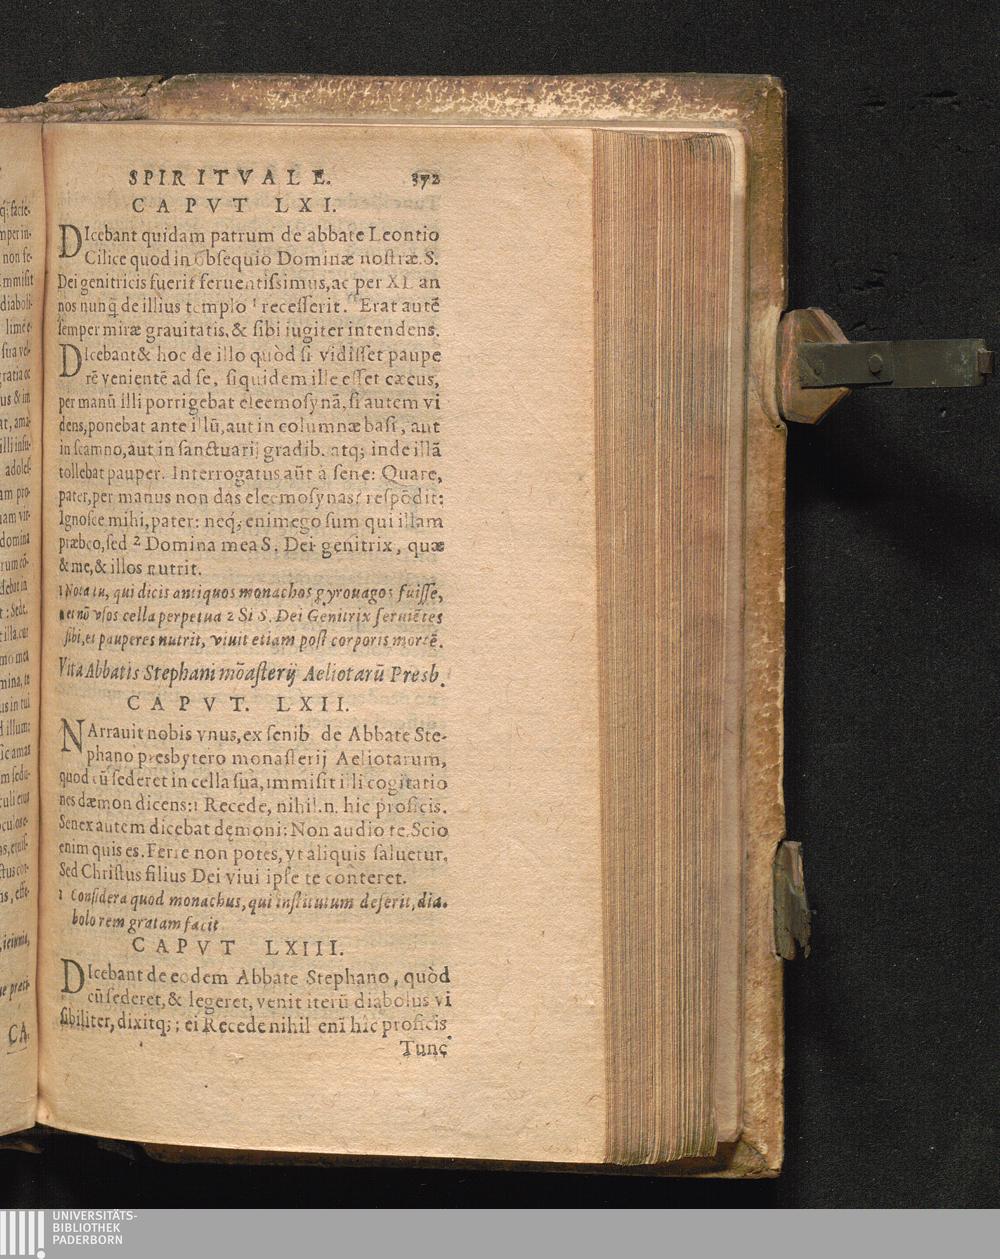 SPIRITVALE. 372
CAPVT LXI.
DIcebant quidam patrum de abbate Leontio
Cilice quod in obsequio Dominæ nostræ S.
Dei genitricis fuerit feruentissimus, ac per XL an
nos nunq̃ de illius templo ¹ recesserit. Erat autẽ
semper miræ grauitatis, & sibi iugiter intendens.
DIcebant & hoc de illo quòd si vidisset paupe
rẽ venientẽ ad se, siquidem ille esset cæcus,
per manũ illi porrigebat eleemosynã, si autem vi
dens, ponebat ante illũ, aut in columnæ basi, aut
in scamno, aut in sanctuarij gradib. atq; inde illã
tollebat pauper. Interrogatus aũt à sene: Quare,
pater, per manus non das eleemosynas? respõdit:
Ignosce mihi, pater: neq; enim ego sum qui illam
præbeo, sed ² Domina mea S. Dei genitrix, quæ
& me, & illos nutrit.
1 Nota tu, qui dicis antiquos monachos gyrouagos fuisse,
et nõ vsos cella perpetua 2 Si S. Dei Genitrix seruiẽtes
sibi, et pauperes nutrit, viuit etiam post corporis mortẽ.
Vita Abbatis Stephani mõasterij Aeliotarũ Presb.
CAPVT. LXII.
NArrauit nobis vnus, ex senib de Abbate Ste-
phano presbytero monasterij Aeliotarum,
quod cũ sederet in cella sua, immisit illi cogitatio
nes dæmon dicens: 1 Recede, nihil .n. hic proficis.
Senex autem dicebat dęmoni: Non audio te. Scio
enim quis es. Ferre non potes, vt aliquis saluetur.
Sed Christus filius Dei viui ipse te conteret.
1 Considera quod monachus, qui institutum deserit, dia-
bolo rem gratam facit
CAPVT LXIII.
DIcebant de eodem Abbate Stephano, quòd
cũ sederet, & legeret, venit iterũ diabolus vi
sibiliter, dixitq; ; ei Recede nihil enĩ hîc proficis.
Tunc
CA.
UNIVERSITÄTS-
BIBLIOTHEK
PADERBORN